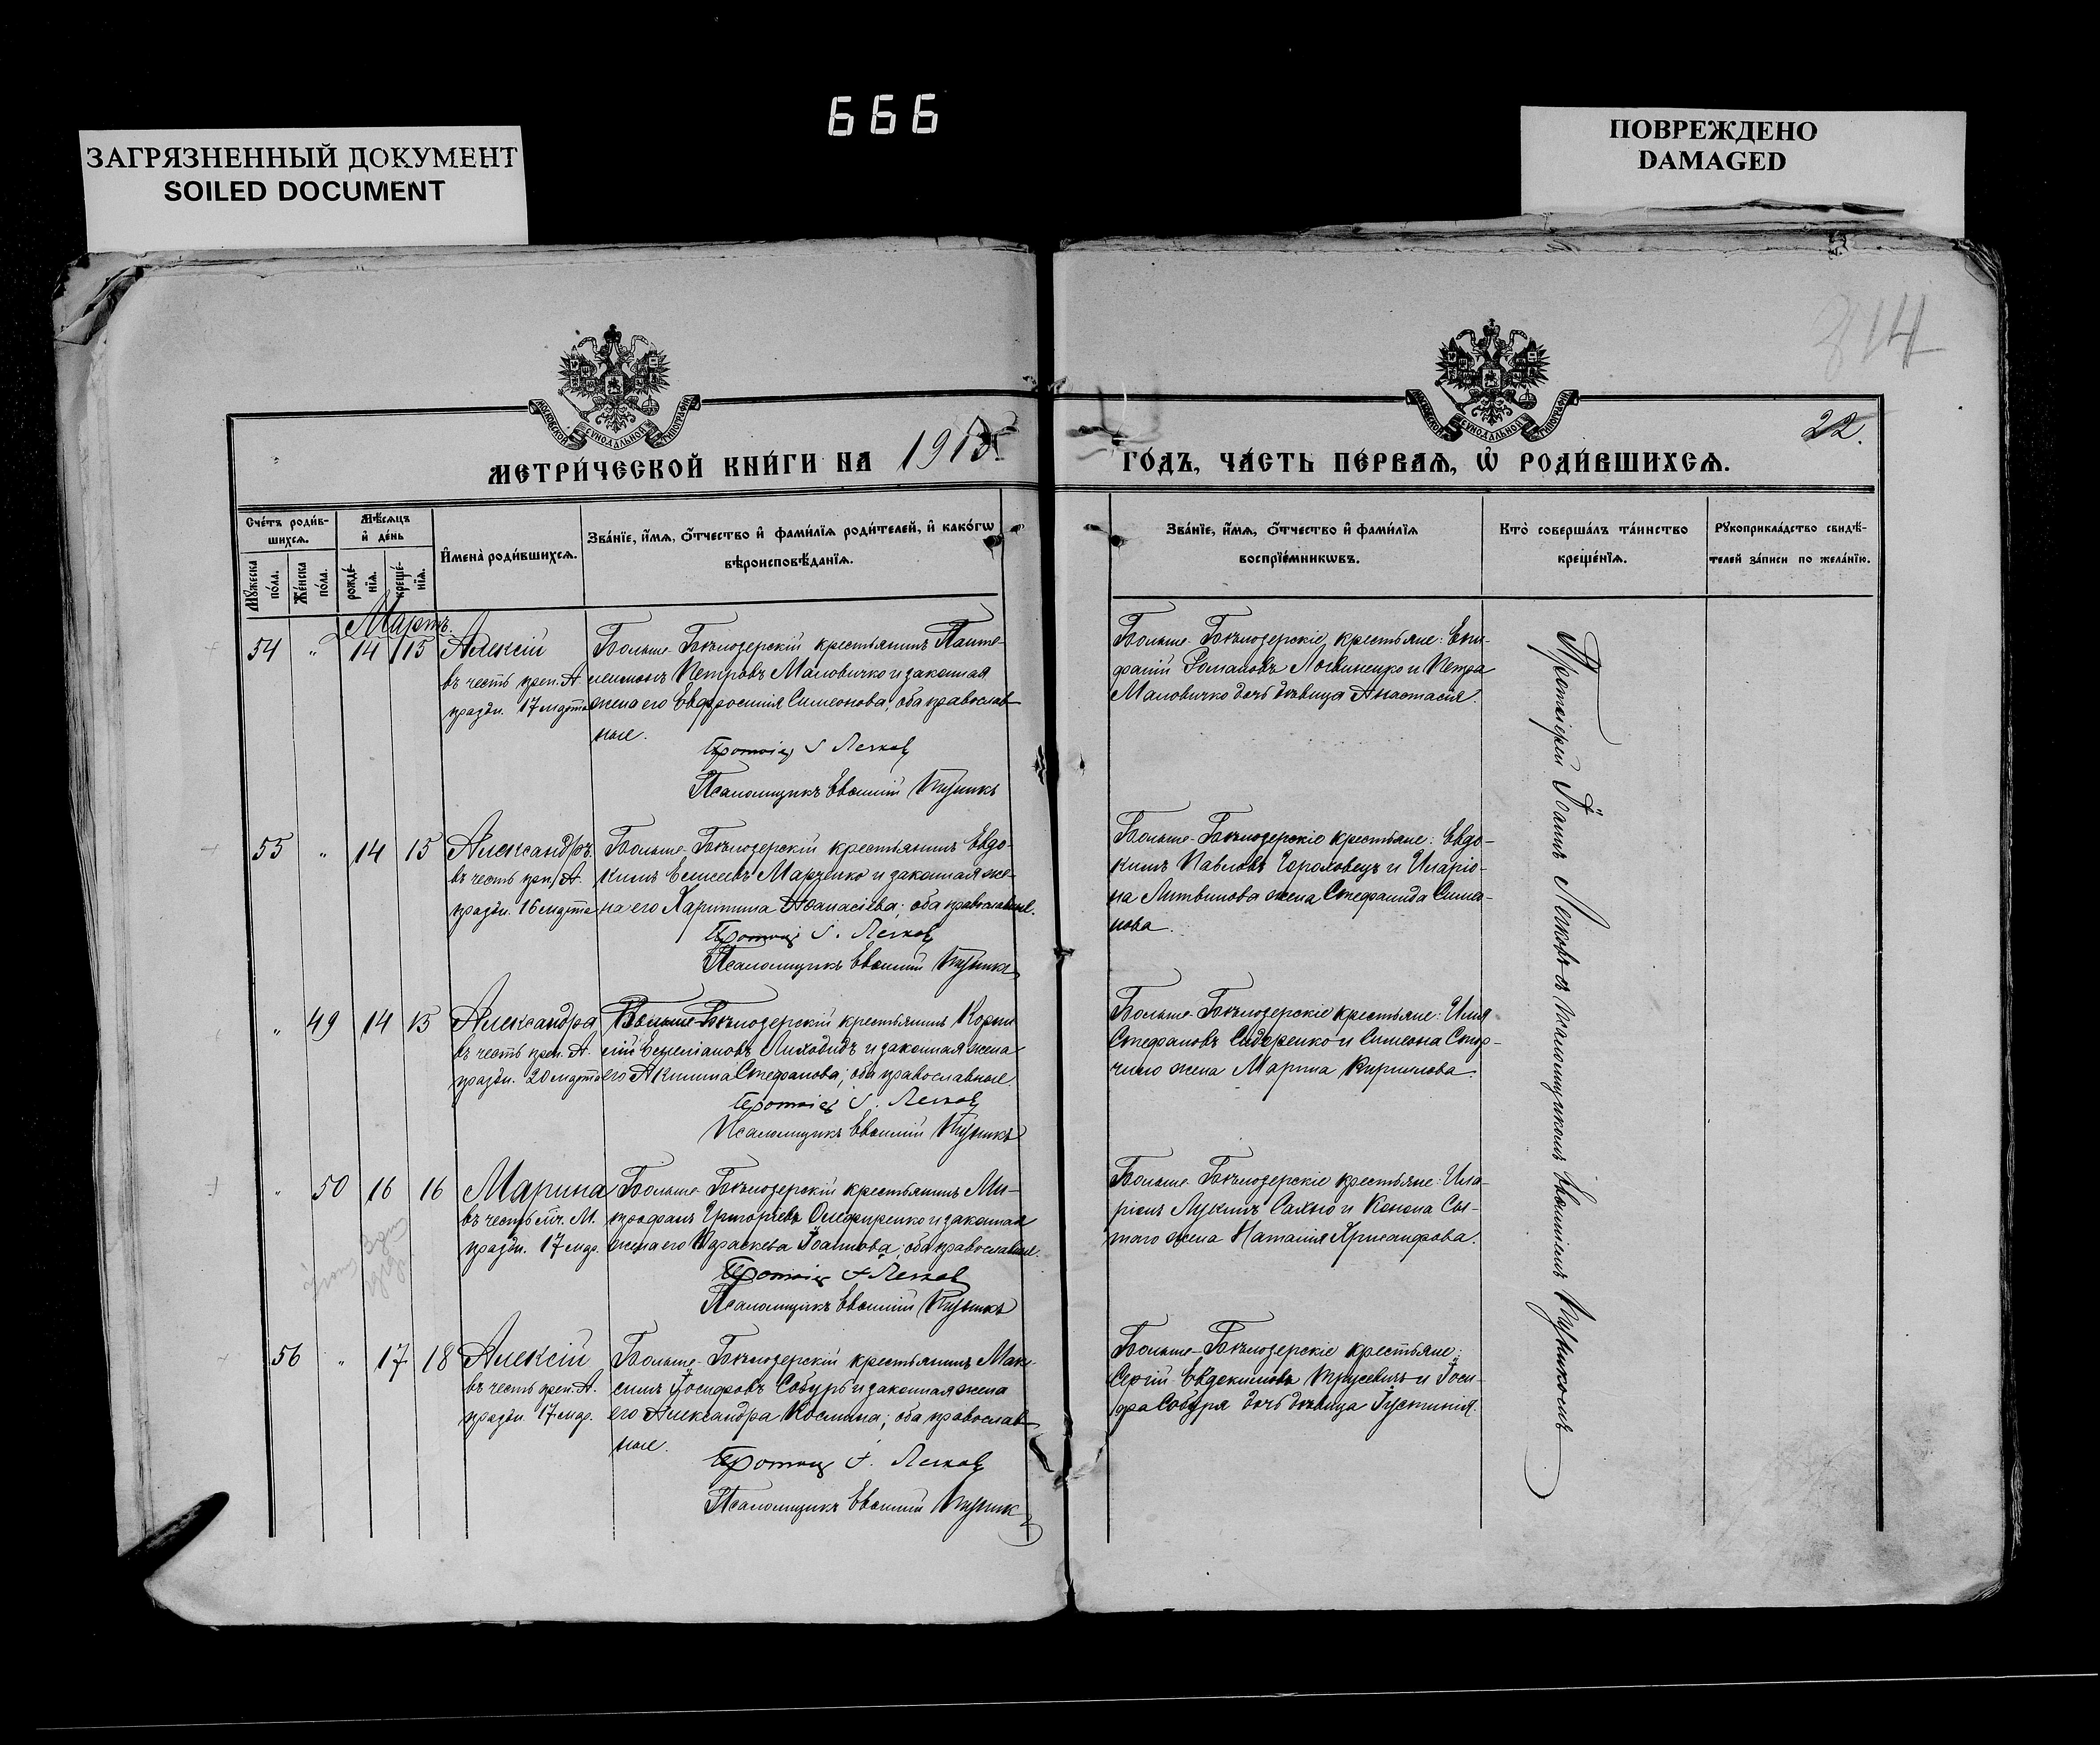 666
ЗАГРЯЗНЕННЫЙ ДОКУМЕНТ
SOILED DOCUMENT
ПОВРЕЖДЕНО
DAMAGED
814
МОСКОВСКОЙ СѴНОДАЛЬНОЙ ТИПОГРАФІИ
МОСКОВСКОЙ СѴНОДАЛЬНОЙ ТИПОГРАФІИ
22.
МЕТРИ́ЧЕСКОЙ КНИ́ГИ НА 1915
ГО́ДЪ, ЧА́СТЬ ПЕ́РВАѦ, Ѡ҆ РОДИ́ВШИХСѦ.
Сче́тъ роди́в-
шихсѧ.
Мꙋ́жеска по́ла.
Же́нска по́ла.
Мѣ́сѧцъ
и҆ де́нь
рожде́-
нїѧ.
креще́-
нїѧ.
И҆мена̀ роди́вшихсѧ.
Зва́нїе, и҆́мѧ, ѻ҆́тчество и҆ фами́лїѧ роди́телей, и҆ како́гѡ
вѣроисповѣ́данїѧ.
Зва́нїе, и҆́мѧ, ѻ҆́тчество и҆ фами́лїѧ
воспрїе́мникѡвъ.
Кто̀ соверша́лъ та́инство
креще́нїѧ.
Рꙋкоприкла́дство свидѣ́-
телей за́писи по жела́нїю.
Мартъ.
54 " 14 15 Алексій
въ честь преп. А
праздн. 17 марта
Больше-Бѣлозерскій крестьянинъ Панте-
леимонъ Петровъ Маловичко и законная
жена его Евфросинія Симеонова, оба православ-
ные.
Протоіер І Легков
Псаломщикъ Евѳимій Пузикъ
Больше-Бѣлозерскіе крестьяне: Епи-
фаній Романовъ Логвиненко и Петра
Маловичко дочь дѣвица Анастасія.
Протоіерей Іоаннъ Легковъ съ псаломщикомъ Евѳиміемъ
55 " 14 15 Александръ.
въ честь преп. А.
праздн. 16 марта
Больше-Бѣлозерскій крестьянинъ Евдо-
кимъ Елисеевъ Марченко и законная же-
на его Харитина Аѳанасіева; оба православные.
Протоіер І. Легков
Псаломщикъ Евѳимій Пузикъ
Больше-Бѣлозерскіе крестьяне: Евдо-
кимъ Павловъ Гороховецъ и Иларіо-
на Литвинова жена Стефанида Симео-
нова.
" 49 14 15 Александра
въ честь преп. А.
праздн. 20 марта
Больше-Бѣлозерскій крестьянинъ Корни
лій Емеліановъ Лиходидъ и законная жена
его Акилина Стефанова; оба православные.
Протоіер І. Легков
Псаломщикъ Евѳимій Пузикъ
Больше-Бѣлозерскіе крестьяне: Илія
Стефановъ Сидоренко и Симеона
жена Марина Кирилова.
" 50 16 16 Марина
въ честь мч. М.
праздн. 17 мар.
Больше-Бѣлозерскій крестьянинъ Ми-
трофанъ Григоріевъ Олефиренко и законная
жена его Параскева Іоаннова; оба православные.
Протоіер І Легков
Псаломщикъ Евѳимій Пузикъ
Больше-Бѣлозерскіе крестьяне: Ила-
ріонъ Лукинъ Сахно и Конона Сы-
таго жена Наталія Хрисанфова.
56 " 17 18 Алексій
въ честь преп. А.
праздн. 17 мар.
Больше-Бѣлозерскій крестьянинъ Мак-
симъ Іосифовъ Собурь и законная жена
его Александра Космина; оба православ-
ные.
Протоіер І. Легков
Псаломщикъ Евѳимій Пузик
Больше-Бѣлозерскіе крестьяне:
Сергій Евдокимовъ и Іоси-
фа Собуря дочь дѣвица Іустинія.